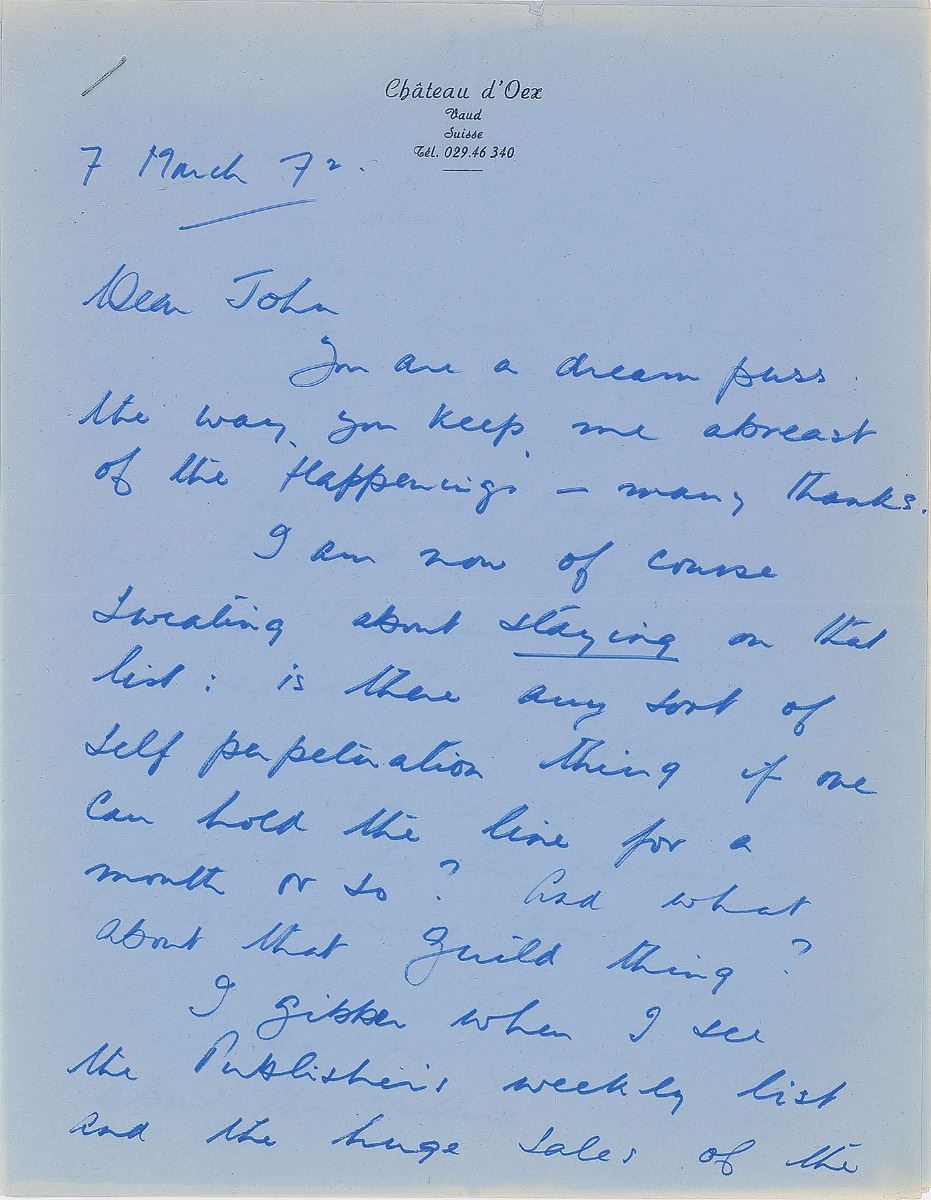 Château d'Oex
Vaud
Suisse
Tél. 029.46 340
7 March 72.
Dear John
You are a dream puss
the way you keep me abreast
of the Happenings – many thanks.
I am now of course
sweating about staying on that
list: is there any sort of
self perpetuation thing if one
can hold the line for a
month or so? And what
about that Guild thing?
I gibber when I see
the Publisher's weekly list
and the huge sales of the